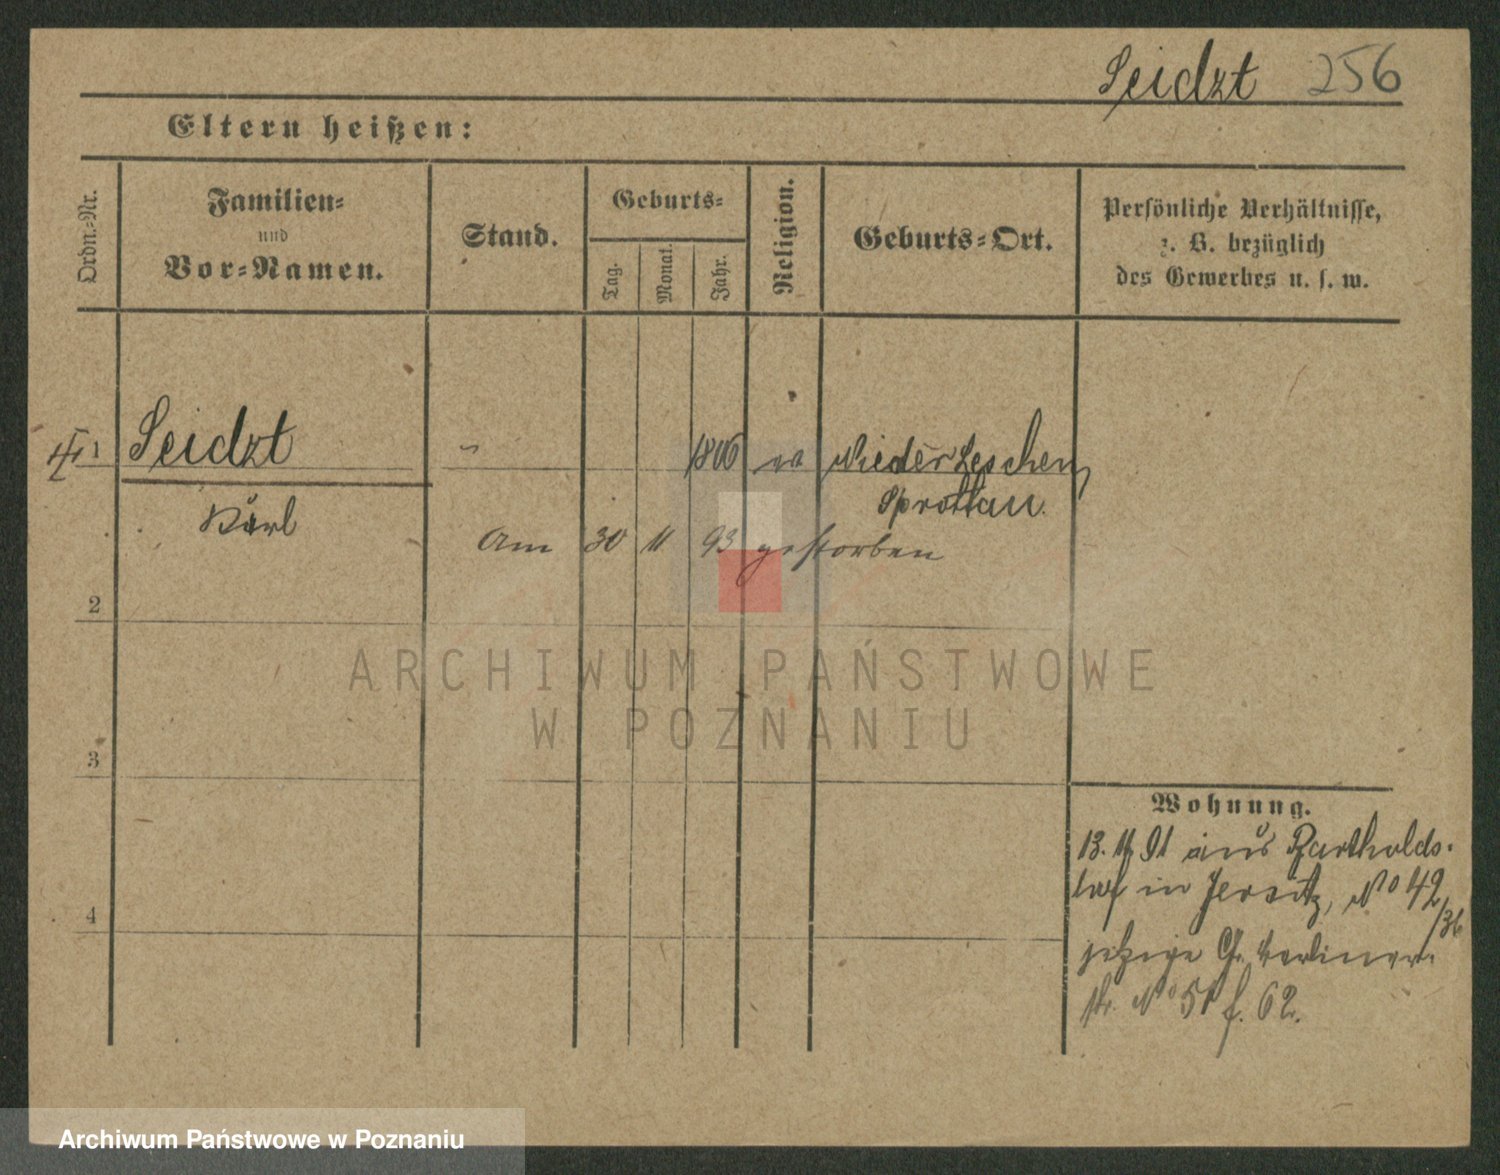 Seidzt 256
Eltern heißen:
Ordn.=Nr.
Familien=
und
Vor=Namen.
Stand.
Geburts=
Tag.
Monat.
Jahr.
Religion.
Geburts=Ort.
Persönliche Verhältnisse,
z. B. bezüglich
des Gewerbes u. s. w.
1 Seidzt 1806 Nieder Leschen
Sprottau.
Karl
Am 30 11 93 gestorben
2
ARCHIWUM PAŃSTWOWE
W POZNANIU
3
Wohnung.
13. 11 91 aus Bartholds-
in Jersitz, No 42/36
jetzige Gr. Berliner-
str. No 51 f. 62.
4
Archiwum Państwowe w Poznaniu